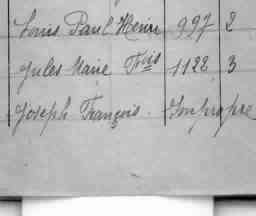 Louis Paul Henri 997 2
Jules Marie Frois 1122 3
Joseph François. Impropre